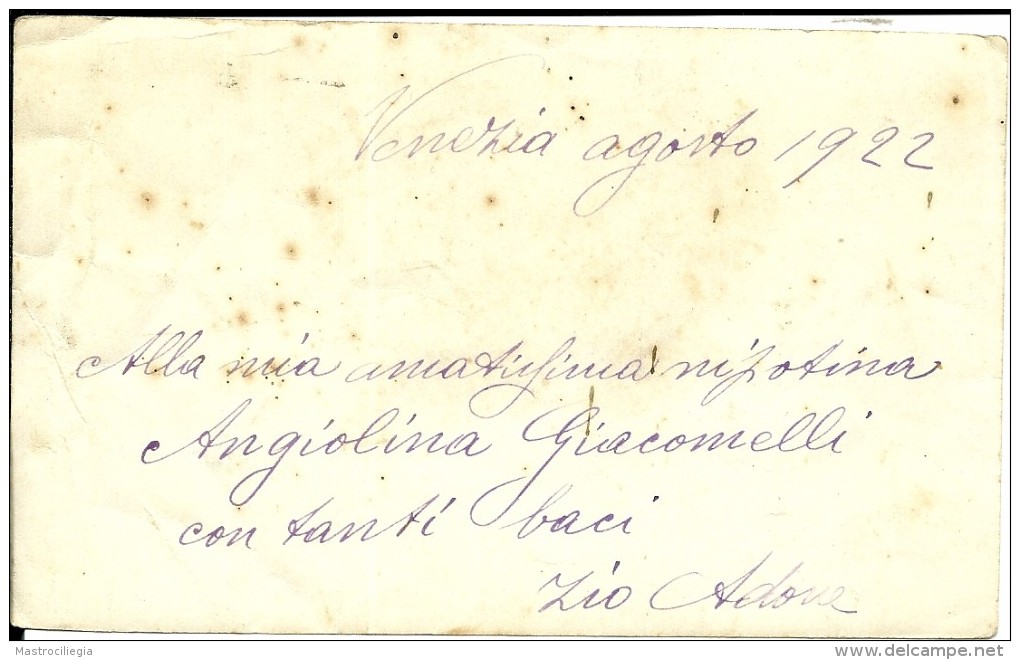 Venezia agosto 1922
Alla mia amatissima nipotina
Angiolina Giacomelli
con tanti baci
Zio Adone
Mastrociliegia
www.delcampe.net